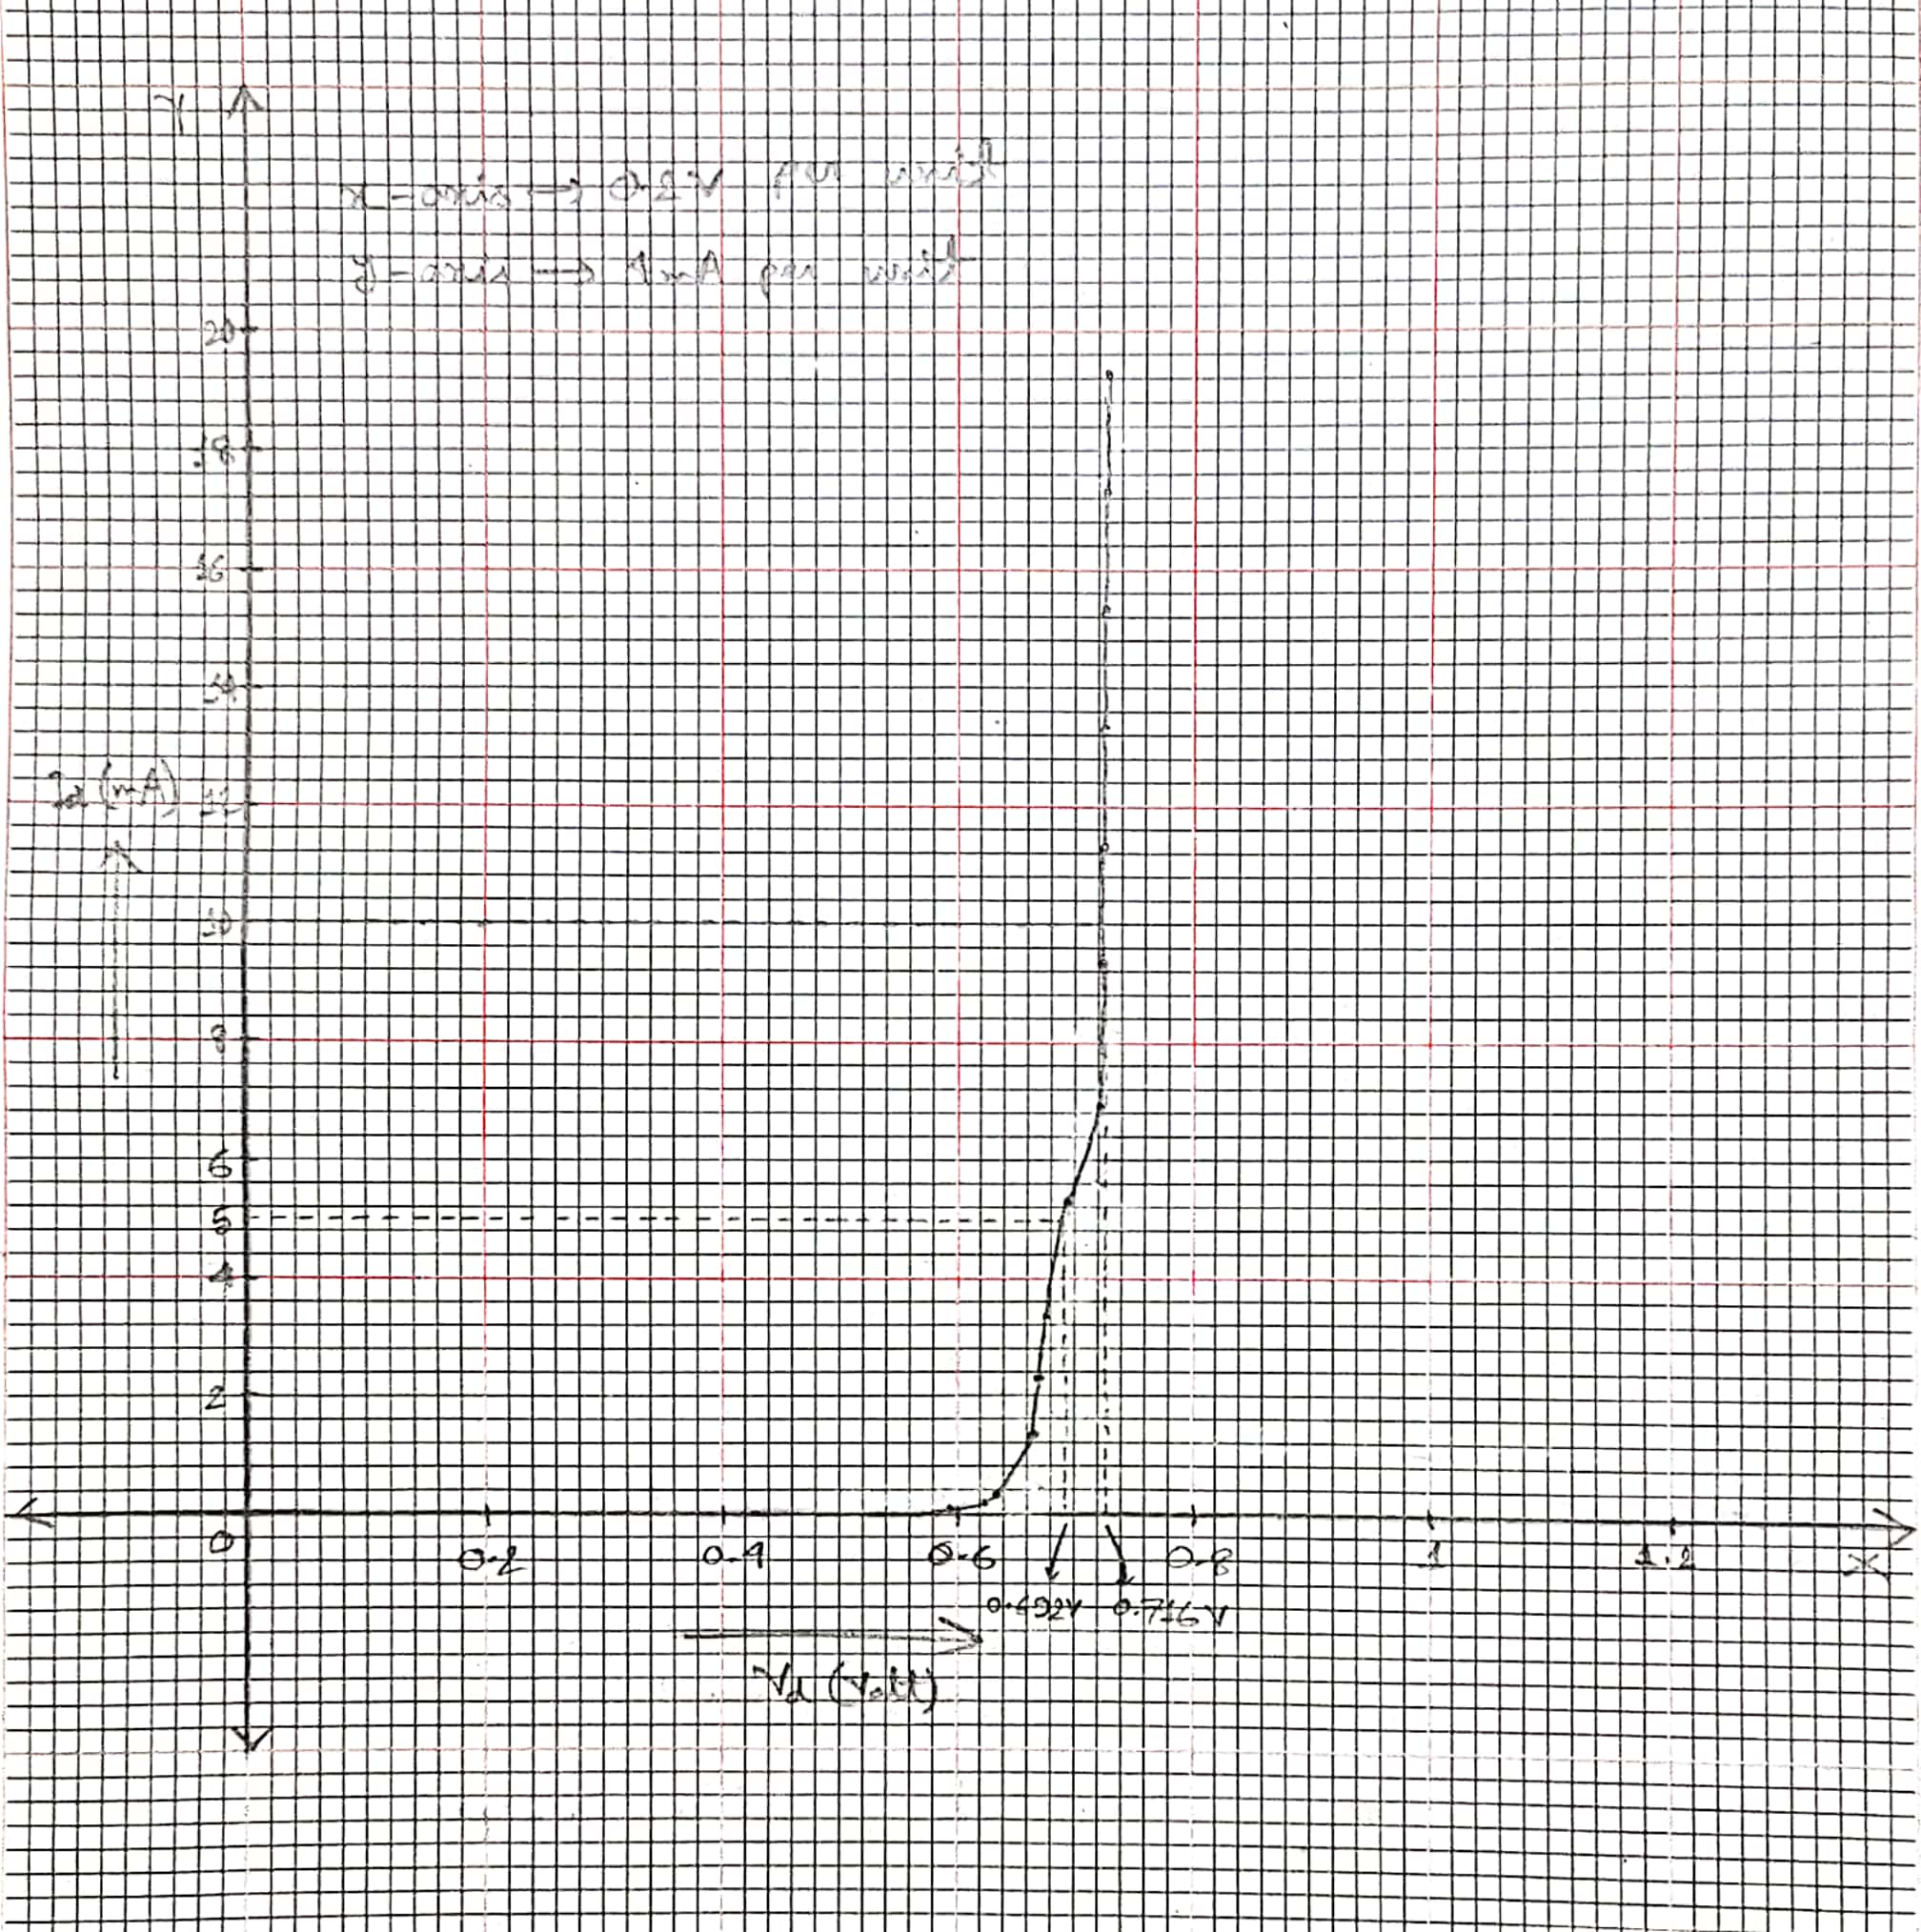 Y
x-axis → 0.2V per unit
y-axis → mA per unit
20
18
16
14
Id (mA) 12
10
8
6
5
4
2
0 0.2 0.4 0.6 0.8 1 1.2 X
0.692V 0.716V
Vd (Volt)